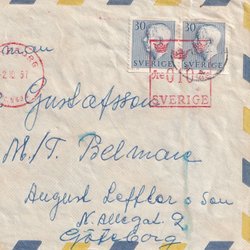 30 30
SVERIGE SVERIGE
2.10.57
öre 010
SVERIGE
Gustafsson
M/T. Belmare
August Leffler o Son
N. Allégat. 2
Göteborg